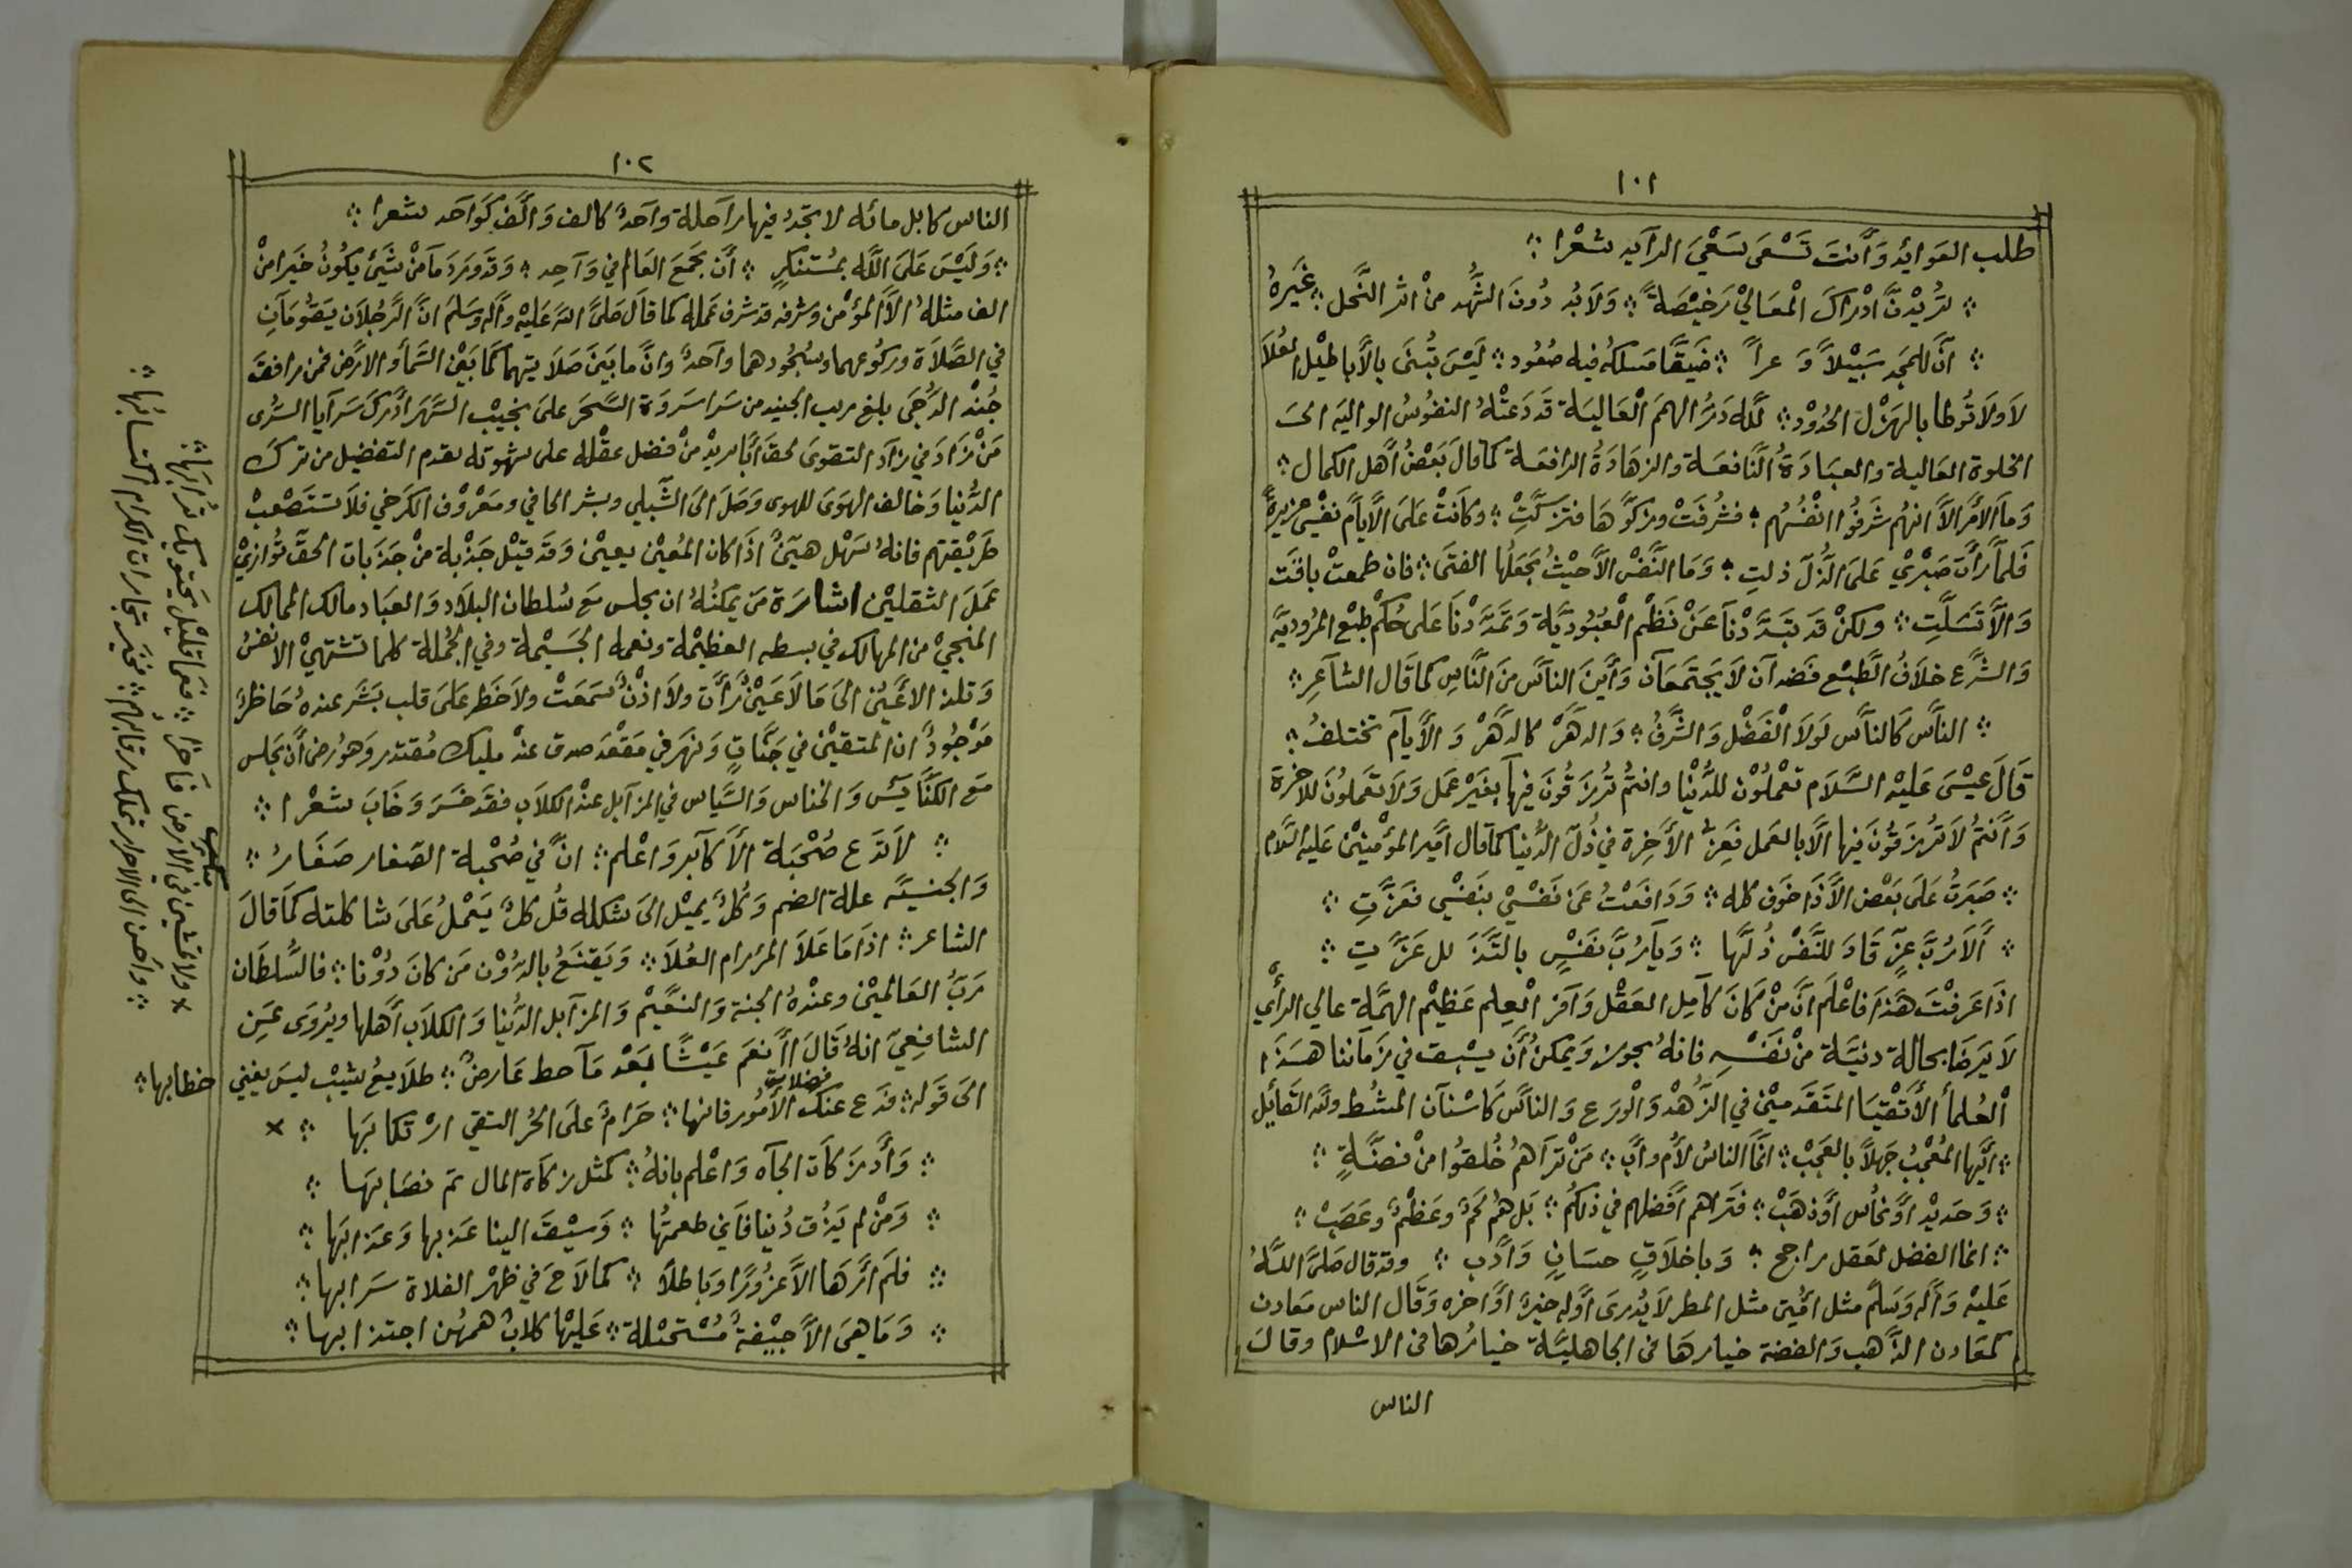 ١٠١
طلب العوائد وَأَنتَ تَسْعَى سَعْيَ الرآيد شعْرا ؞
؞ تُرِيْدِنَ ادْرَاكَ الْمعَالِيْ رَخِيْصَةً ؞ وَلَابُد دُونَ الشَّهْد منْ ابر النَّحل ؞ غَيرهُ
؞ أنَّ للمَجدِ سَبِيْلاً وَعراً ؞ ضَيقًا مَسلكُه فيه صُعُود ؞ لَيْسَ تُبنَى بالأباطيْل العُلَا
لَا ولَا تُوطا بالهَزْل الخُدُوْد ؞ للّه دَرُّ الهمَم الْعَاليَة قَد دَعَتْهُ النفُوسُ الواليَه الى
الخلوة العَالية والعبَادَةُ النَّافعَة والزهَادَةُ الرافعَة كما قالَ بَعْضُ أَهل الكمال ؞
وَما الامْر الاَّ انهُم شَرفُوا انْفُسُهُم ؞ فشُرفَتْ وزكوَّهَا فتزَكَّتِ ؞ وكانَتْ عَلىَ الأيام نفْسِي عزيزةً
فَلمَّا رأَت صَبْرِيْ عَلىَ الذُّلّ ذلتِ ؞ وَمَا النَّفْس الاَّ حَيْثُ يَجعَلُها الفتَى ؞ فان طمعتْ تافَت
وَالاَّ تَسَلَّتِ ؞ ولكنْ قَد تبَدَّدْنَا عَنْ نَظْمِ الْعُبُوْديَّة وَتمَرَّدْنَا عَلى حُكْم طبْع المرُوديَّه
وَالشَّرع خلَافُ الطَّبع فَضدآن لَا يَجتَمَعَان وَأَينَ النآس منَ النَّاس كما قَال الشآعر ؞
؞ النَّاس كَالنآَّس لَولَا الْفَضْل وَالشَّرَفُ ؞ وَالدهَرْ كالدهَرْ وَالأيآم تختلفُ ؞
قَالَ عيْسَى عَليْه السَّلَام تعْملُوْن للدُّنْيا وانتُم تُرْزَقُونَ فيهآ بغَيْر عَمل وَلَا تعْملُونَ للاخرة
وَأَنتُم لَا تُرزقُونَ فيها الاَّ بالعَمل فَعزُّ الأخرة في ذُلّ الدُّنيا كما قال أَمير المؤمنيْن عَليه السَّلام
؞ صَبَرتُ عَلىَ بَعْض الأَذَا خَوْف كلّه ؞ وَدَافَعْتُ عَن نَفسْي بنَفسْي فعَزَّتِ ؞
؞ أَلَا رُبَّ عزٍّ قَادَ للنَّفْس ذُلَّها ؞ وَيَا رُبَّ نَفْسٍ بالتَّذَلل عَزَّتِ ؞
اذَا عَرفْتَ هَذَا فاعْلَم انَّ منْ كَانَ كَآمِل العَقْل وَآفر الْعِلم عَظيْم الهِمَّة عالي الرأي
لَا يَرضَا بحالة دنيَّة منْ نَفْسِه فانهُ يجوز وَيمكنُ أَن يسْبِق في زَماننا هَذَا
الْعُلمأ الأَتْقيَا المتَقَدميْن في الزُّهْد وَالْوَرَع وَالنآَّس كَاسْنَآن المشط ولله القَائِل
؞ أَيُّها المُعْجبُ جَهلاً بالعَجَبْ ؞ انَّمَا الناسُ لأُم وأَب ؞ مَنْ ترَاهُم خُلقُوا منْ فضّةٍ ؞
؞ وَحَديْد أَو نُحاس أَو ذهَبْ ؞ فَترَاهم أَفضَلهم في ذلكُم ؞ بَل هُم لَحْم وعَظْمٌ وعَصَبْ ؞
؞ انما الفضل لعَقل راجح ؞ وَباخلَاقٍ حسَانٍ وَأَدَب ؞ وقد قال صَلىَّ اللّهُ
عَليْه وَآله وَسَلَّم مثل أُمَّتيْ مثل المطر لَا يُدرىَ أَوله خيرٌ أَو آخره وَقَال الناس مَعادن
كمَعَادن الذَّهب وَالفضة خيارهَا في الجاهليَّة خيَارُها في الاسْلام وقالَ
الناس
١٠٢
الناس كابل مائه لا تجدُ فيها راحلة وآحدٌ كالف وَالفٌ كَوَاحد شعرا ؞
؞ وَليْسَ عَلىَ اللّه بمُستنكرٍ ؞ أَن يَجمَع العَالم في وَآحِدِ ؞ وَقَد وَرَد مَا منْ شَيْ يَكُونُ خَيرا منْ
الف مثلهُ الاَّ المؤمن وشرفه قد شرف عَمله كما قَالَ صَلىَّ الله عَليْه وآله وسَلمَ انَّ الرَّجُلَان يَقُومَانِ
في الصَّلاَة وركوعهما وسُجُودهما وآحدٌ وانَّ ما بَينَ صَلَاتيهما كما بَيْنَ السَّماَ والارَض فمن رافقَ
جُنْد الدُّجَى بلغ مريب الجنيد من سَرَا سَروَة السَّحَر عَلىَ نجيْب السَّهَر ادْرَكَ سَرَآيا السَّرى
مَنْ زَادَ في زآد التقوى لحقَ أَبا يزيْد منْ فضل عقْله على شهوته يقدم التفضيل من ترك
الدُّنيا وَخالف الهوَىَ للهوى وَصَلَ الىَ الشّبلي وبشر الحافي ومعْرُوْف الكَرخي فلَا تسْتَصْعبْ
طَريْقتهم فانهُ سَهْل هيّنٌ اذَا كان المُعيْن يعيْن وَقَد قيْل جَذْبة منْ جَذَبات الحَقّ تُوَازيْ
عَملَ الثقليْن اشارَة مَن يمكنُهُ ان يجلس مَع سُلطان البلَاد وَالعبَاد مالك الممالك
المنجيْ من المهالك في بسطه العظيْمة ونعمه الجَسيْمة وفي الجُملة كلما تشتهيْ الانفسُ
وَتلذ الاعْيُنُ الىَ مَا لَا عَيْنٌ رَأَت ولَا اذْنٌ سَمَعَتْ ولَا خَطَر عَلىَ قلب بَشَر عندهُ حَاظرٌ
مَوْجُودٌ ان المتقيْن في جَنَّاتٍ وَنهَر في مَقْعَد صدق عندْ مليك مُقتدر وَهوُ رضى أَن يجَلس
مَع الكنَّايس وَالخناس وَالسّياس في المزآبل عندْ الكلاَب فقَد خَسَرَ وَخَابَ شعْرا ؞
؞ لَا تدَع صُحْبَة الأكَآبر وَاعْلم ؞ انَّ في صُحْبة الصّغار صَغَارُ ؞
وَالجنسيَّه علة الضم وَكُلٌ يميْل الىَ شكله قُل كُلٌ يَعْملُ عَلىَ شاكلته كَما قالَ
الشاعر ؞ اذَا مَا عَلَا المرْ رام العُلَا ؞ وَيَقنَعُ بالدُّوْن مَن كانَ دُوْنا ؞ فالسُّلطَان
رَبُّ العَالميْن وعندْهُ الجنة وَالنعَّيْم وَالمزآبل الدُّنيا وَالكلَاب أَهلها ويُرْوَى عَن
الشافِعيّ انهُ قَالَ أَأَنعَم عَيْشًا بَعْد مَا حط عَارضٌ ؞ طلَايعُ شيْبْ ليسَ يغني خظابها ؞
الىَ قَوله ؞ فدَع عنك فضلات الأمُور فانها ؞ حَرَامٌ عَلىَ الحُر التقي ارْتكابُهَا ؞ ×
؞ وَأَدّ زَكاَة الجآه وَاعْلم بانهُ ؞ كمثل زكَاة المال تَم نصَابهَا ؞
؞ وَمَنْ لم يَذُق دُنيا فاَني طعمتُها ؞ وَسيْقَ الينا عَذبها وَعَذابهَا ؞
؞ فلَم ارَهَا الاَّ غرُورًا وَبَاطلًا ؞ كما لَاحَ في ظهْر الفلاة سَرَابها ؞
؞ وَمَا هيَ الاَّ جيْفةٌ مُسْتحيْلة ؞ عَليهْا كلاَبٌ همهُن اجتذابها ؞
× ولا تمشين في الارض فَاخرًا ؞ فعَما قليْل يحَتويك تُرابُها ؞
؞ واحسن الى الاحرار تملك رقابهم ؞ فخير تجارات الكرام اكتسابُها ؞